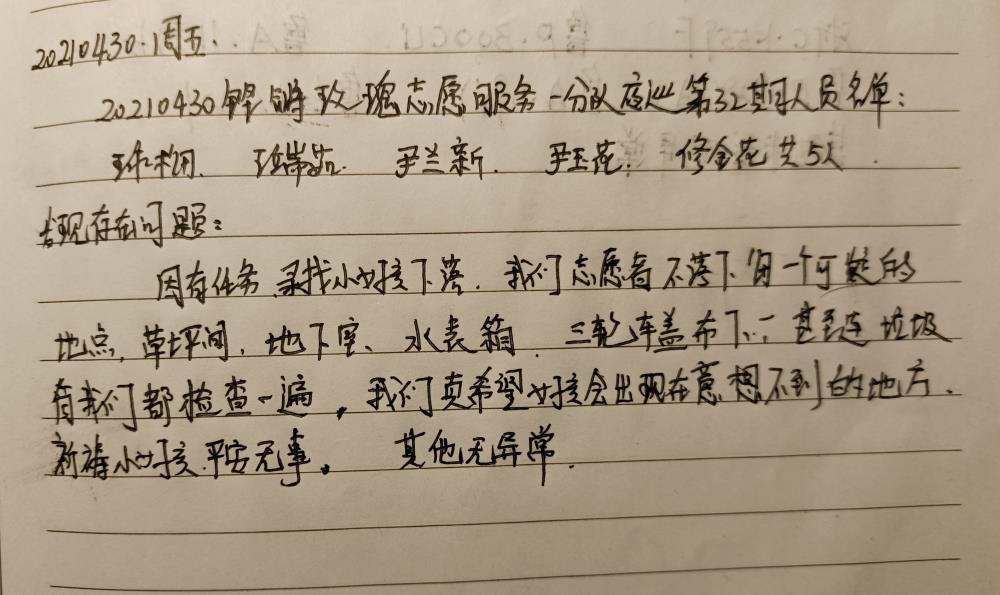 20210430·周五.
20210430铿锵玫瑰志愿服务一分队夜巡第32期人员名单:
尹兰新. 尹玉花. 修金花共5人.
发现存在问题:
因有任务寻找小女孩下落. 我们志愿者不落下每一个可疑的
地点, 草坪间, 地下室、水表箱. 三轮车盖布下... 甚至连垃圾
我们都检查一遍, 我们真希望女孩会出现在意想不到的地方.
祈祷小女孩平安无事。 其他无异常.